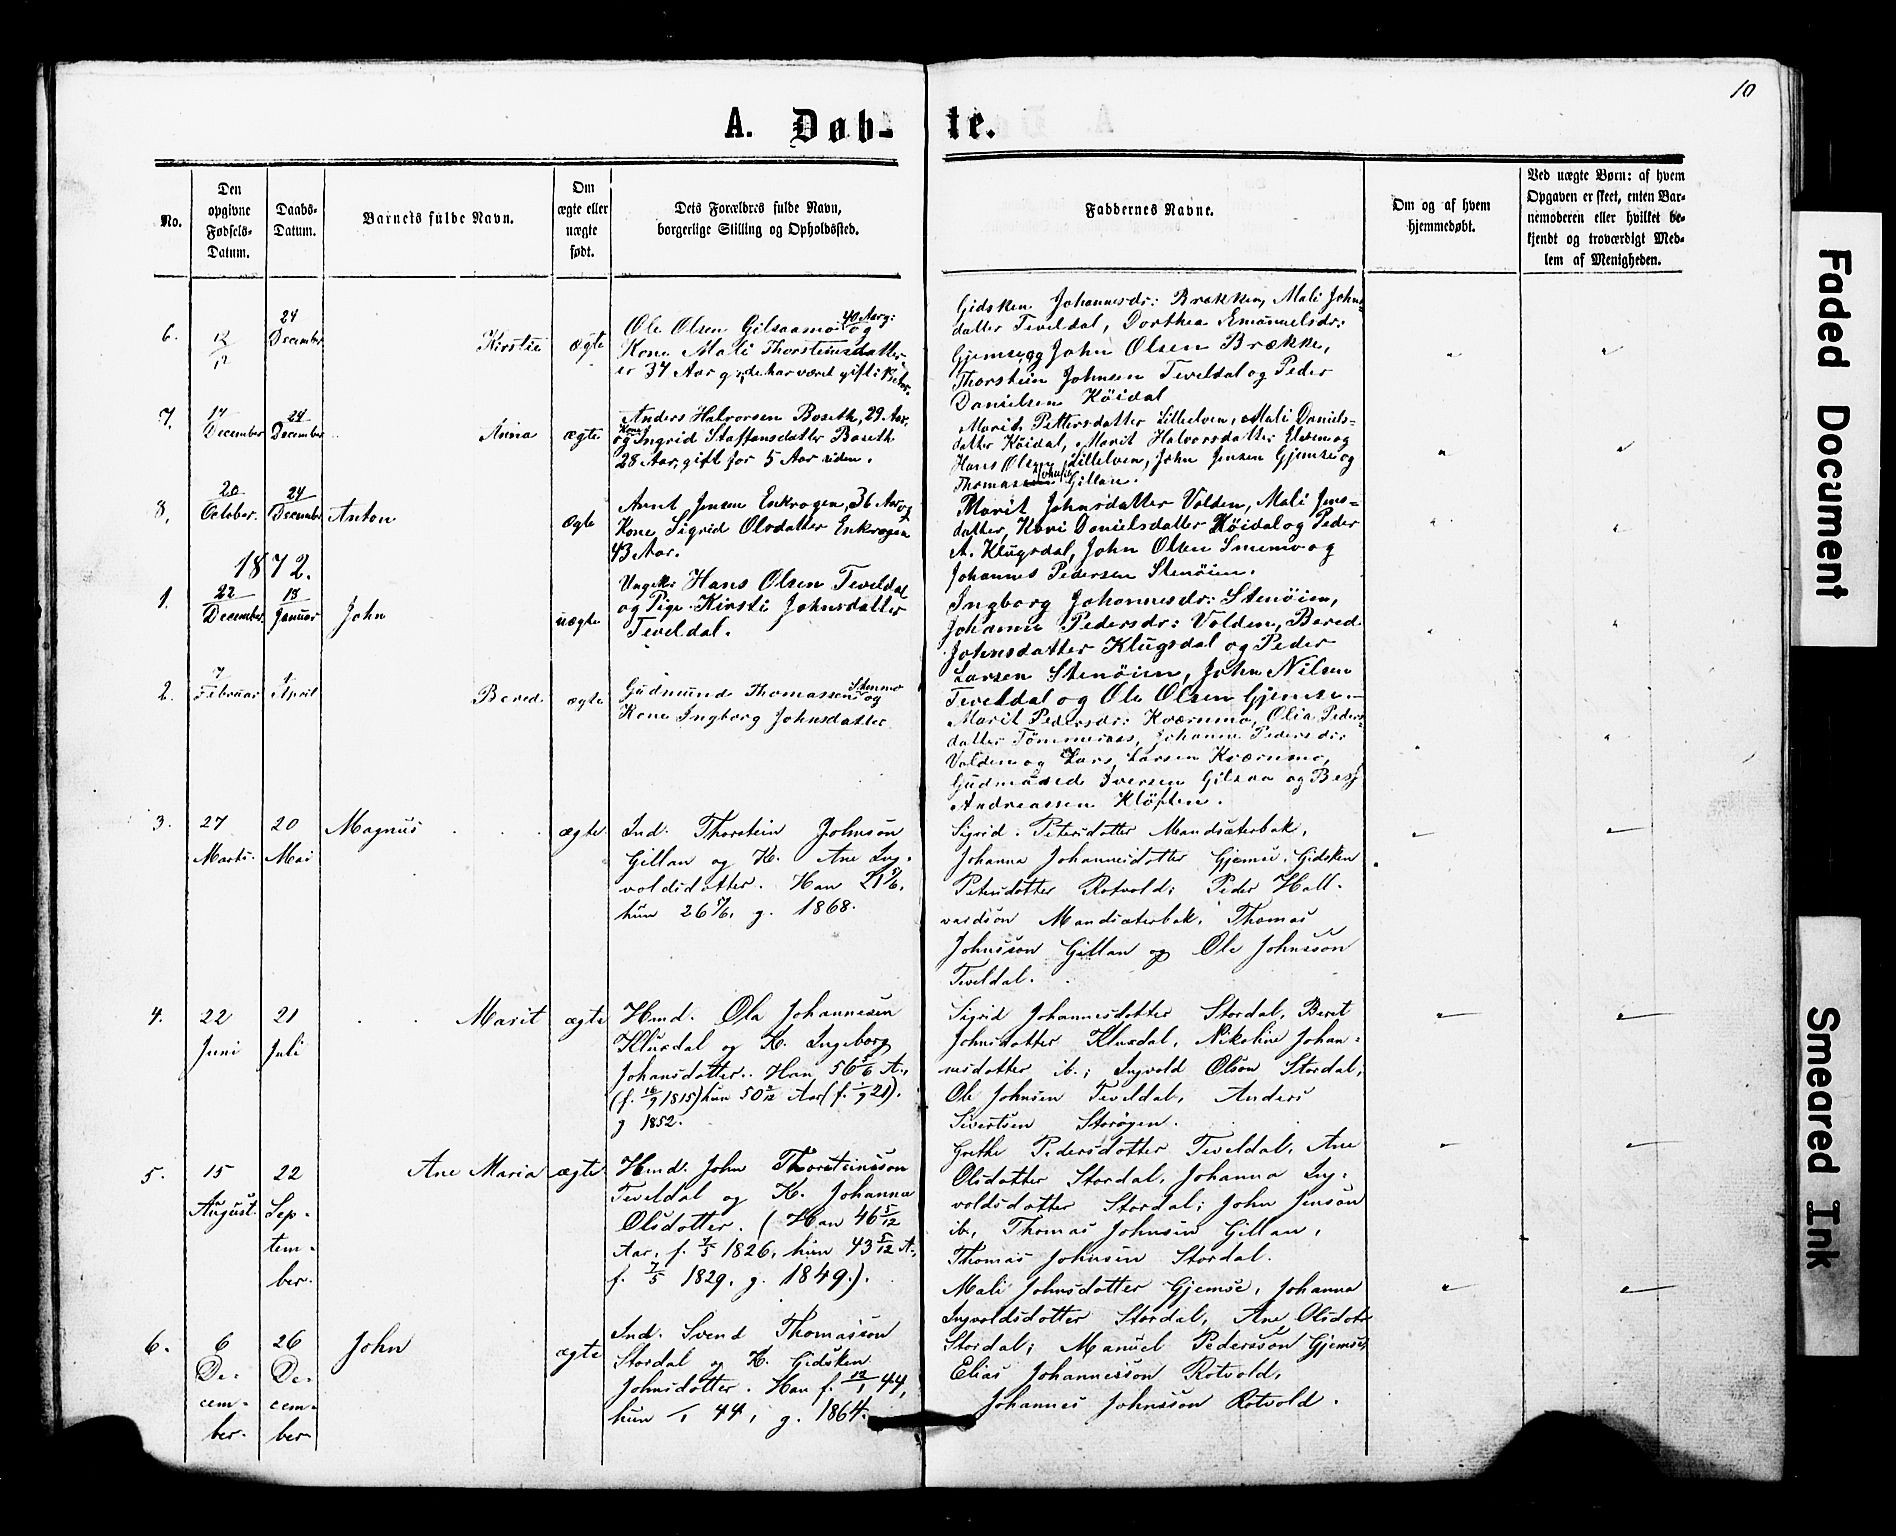 10
A. Døb-te.
No.
Den opgivne Fødsels-Datum.
Daabs-Datum.
Barnets fulde Navn.
Om ægte eller uægte født.
Dets Forældres fulde Navn, borgerlige Stilling og Opholdssted.
Faddernes Navne.
Om og af hvem hjemmedøbt.
Ved uægte Børn: af hvem Opgaven er skeet, enten Barnemoderen eller hvilket bekjendt og troværdigt Medlem af Menigheden.
6.
12/12
24 December
Kirstie
ægte
Ole Olsen Gilsaamo 40 Aarg: og
Kone Mali Thorsteinsdatter
er 37 Aar g; de har været gift
Gidsken Johannesdr: Brækken, Mali Johns
datter Teveldal, Dorthea Emanuelsdr:
Gjemse og John Olsen Brække,
Thorstein Johnsen Teveldal og Peder
Danielsen Köidal
7.
17 December
24 December
Anna
ægte
Anders Halvorsen Boseth, 29 Aar,
og Kone Ingrid Staffansdatter Boseth
28 Aar, gift for 5 Aar siden.
Marit Pettersdatter Lillelven, Mali Daniels-
datter Köidal, Marit Halvorsdatter Elven og
Hans Olsen Lillelven, John Jensen Gjemse og
Thomas Johnsen Gillan.
8.
20 October
24 December
Anton
ægte
Arnt Jensen Enkrogen, 36 Aar og
Kone Sigrid Olsdatter Enkrogen
43 Aar.
Marit Johnsdatter Volden, Mali Jens-
datter, Kari Danielsdatter Köidal og Peder
A. Klugsdal, John Olsen Smemo og
Johannes Pedersen Stenöien.
1872.
1.
22 December
13 Januar
John
uægte
Ungek: Hans Olsen Teveldal
og Pige Kirsti Johnsdatter
Teveldal.
Ingborg Johannesdr: Stenöien,
Johanna Pedersdr: Volden, Bered
Johnsdatter Klugsdal og Peder
Larsen Stenöien, John Nilsen
Teveldal og Ole Olsen Gjemse.
2.
7 Februar
1 April
Bered
ægte
Gudmund Thomassen Stenmo og
Kone Ingborg Johnsdatter
Marit Pedersdr: Kværnmo, Olia Peders-
datter Tömmeraas, Johanna Pedersdr:
Volden og Lars Larsen Kværnmo,
Gudmund Iversen Gilsaa og
Andreassen Klöften.
3.
27 Marts.
20 Mai
Magnus
ægte
Ind. Thorstein Johnson
Gillan og K. Ane Ing-
voldsdotter. Han
hun g. 1868.
Sigrid Petersdotter Mandsæterbak,
Johanna Johannesdotter Gjemse, Gidsken
Petersdotter Rotvold; Peder Hall-
vardsön Mandsæterbak, Thomas
Johnssön Gillan og Ole Johnssön
Teveldal.
4.
22 Juni
21 Juli
Marit
ægte
Hmd. Ola Johannesen
Kluxdal og K. Ingeborg
Johansdotter. Han 56 5/6 A.,
(f. 16/9 1815) hun 50 Aar (f. 1/9 21).
g 1852.
Sigrid Johannesdotter Stordal, Beret
Johnsdotter Kluxdal, Nikoline Johan-
nesdotter ib.; Ingvold Olson Stordal,
Ole Johnsen Teveldal, Anders
Sivertsen Storögen.
5.
15 August.
22 Sep-
tem-
ber.
Ane Maria
ægte
Hmd. John Thorsteinsson
Teveldal og K. Johanna
Olsdotter. (Han 46 5/12
Aar, f. 1826, hun 43 5/12 A.
f. 7/5 1829. g. 1849.).
Grethe Pedersdotter Teveldal, Ane
Olsdotter Stordal, Johanna Ing-
voldsdotter Stordal; John Jensön
ib., Thomas Johnsen Gillan,
Thomas Johnsen Stordal.
6.
6 De-
cem-
ber.
26 De-
cem-
ber.
John
ægte
Ind. Svend Thomasson
Stordal og K. Gidsken
Johnsdotter. Han f. 12/1 44,
hun 44, g. 1864.
Mali Johnsdotter Gjemse, Johanna
Ingvoldsdotter Stordal, Ane Olsdotr
Stordal; Manuel Pederssön Gjemse,
Elias Johannessön Rotvold,
Johannes Johnssön Rotvold.
Faded Document
Smeared Ink